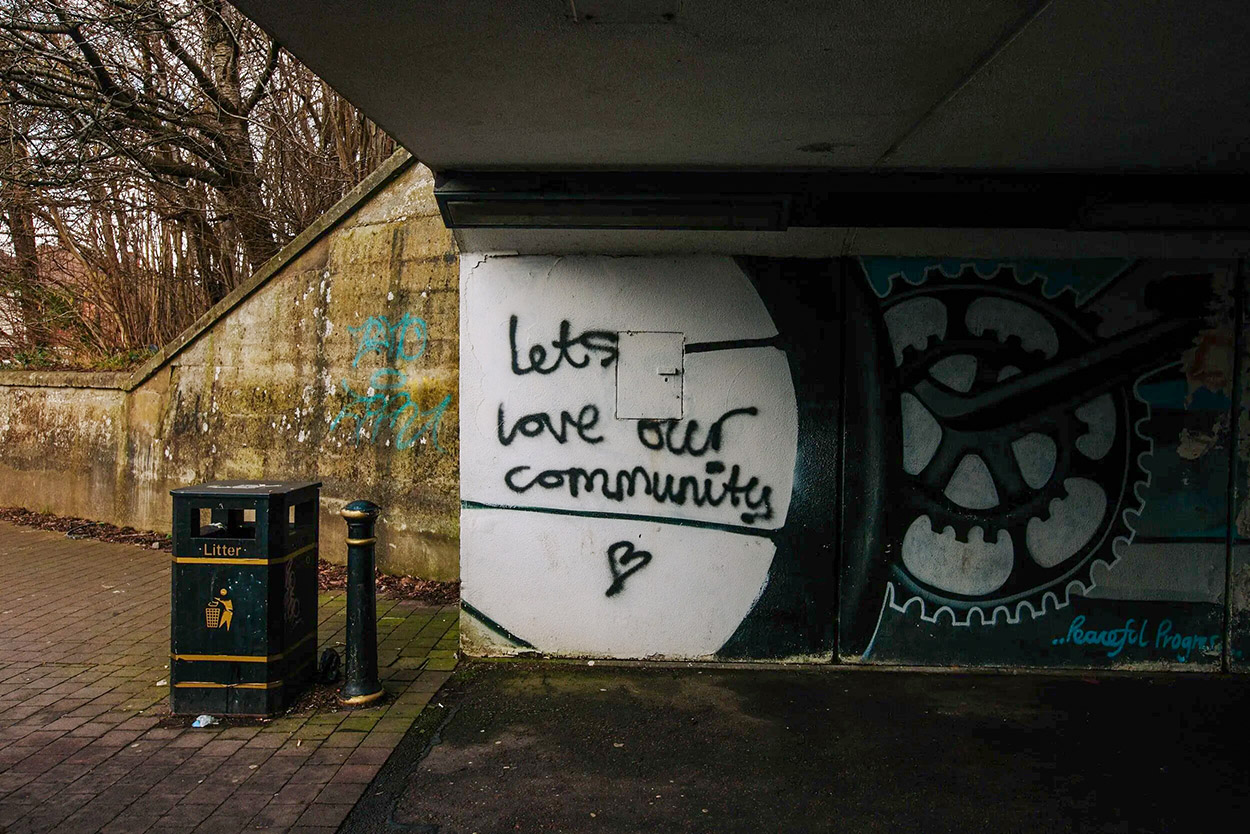 lets
love our
community
Litter
..Peaceful Progress..